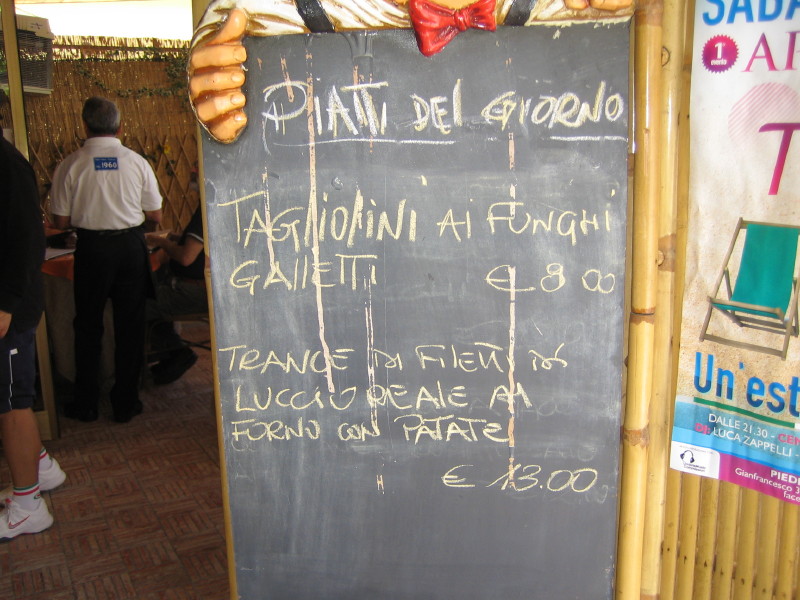 PIATTI DEL GIORNO
TAGLIOLINI AI FUNGHI
GALLETTI € 8.00
TRANCE DI FILETTI DI
LUCCIO REALE AL
FORNO CON PATATE
€ 13.00
1960
SABA
1°
Un'est
DALLE 21.30 - CEN
LUCA ZAPPELLI -
PIEDI
Gianfrancesco
face